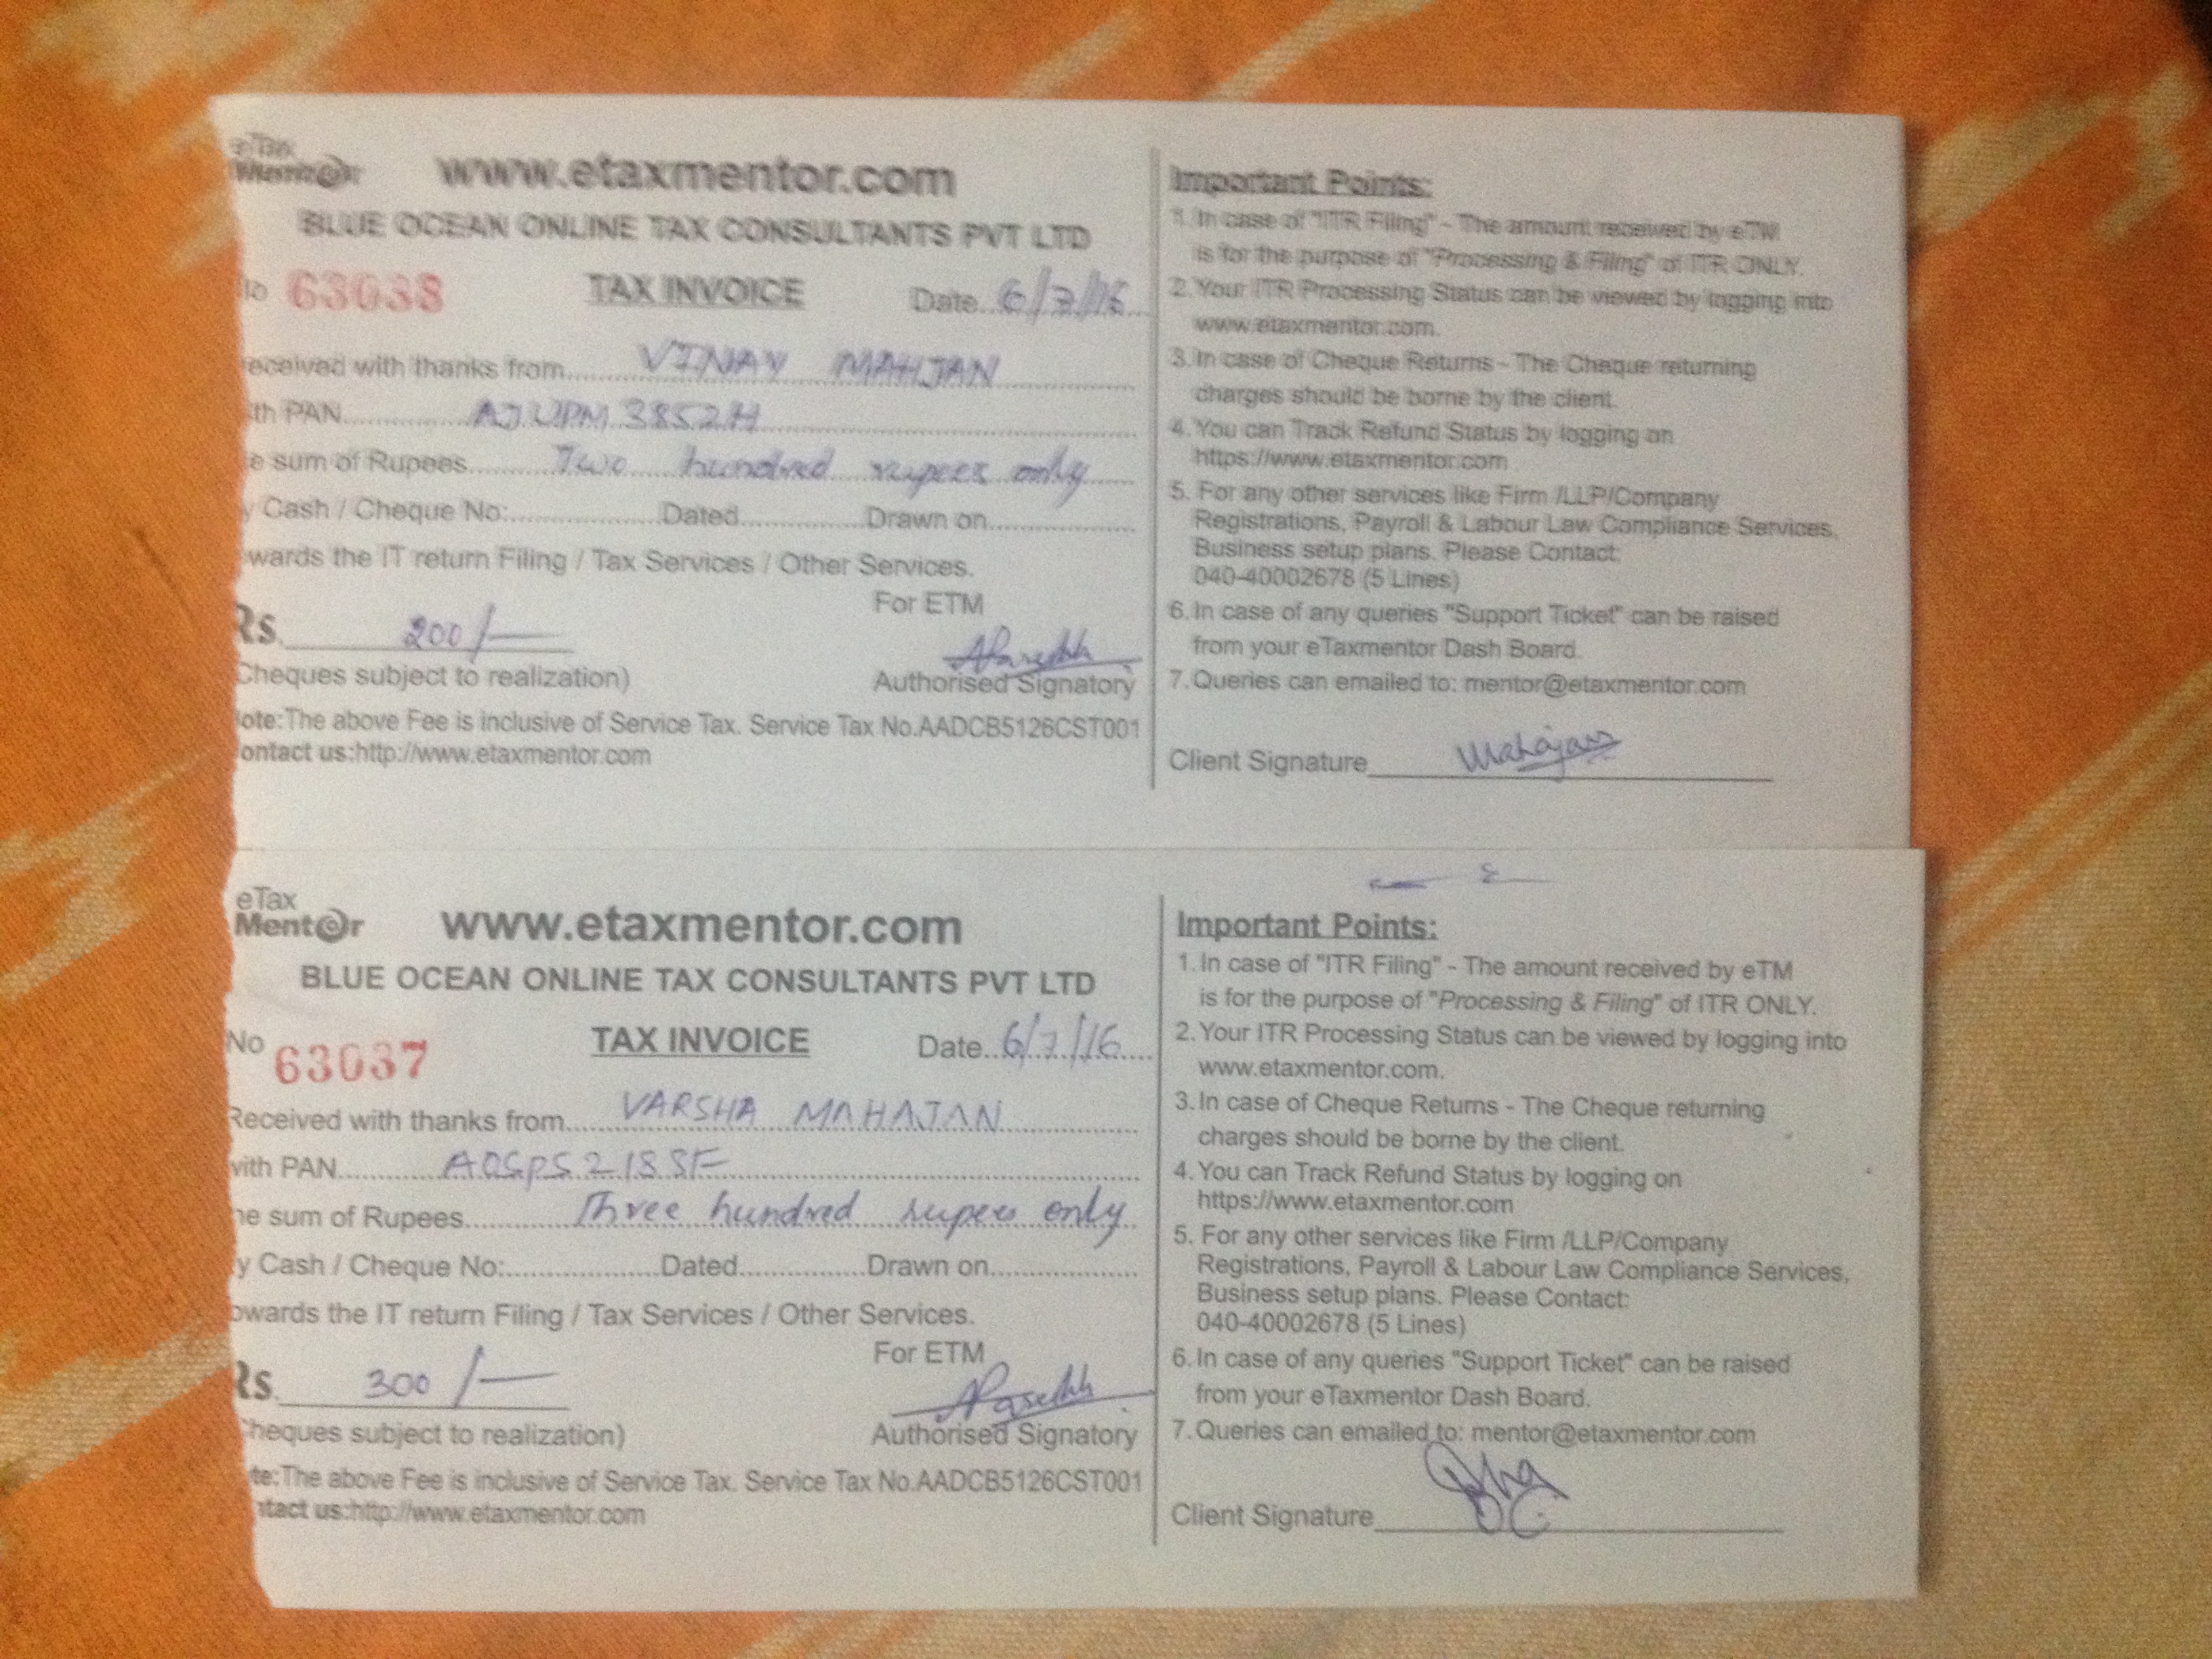 eTax
Ment@r www.etaxmentor.com
BLUE OCEAN ONLINE TAX CONSULTANTS PVT LTD
No 63038 TAX INVOICE Date 6/7/16
eceived with thanks from VINAY MAHJAN
th PAN
e sum of Rupees Two hundred rupees only
y Cash / Cheque No: Dated Drawn on
wards the IT return Filing / Tax Services / Other Services.
Rs. 200/- For ETM
Cheques subject to realization) Authorised Signatory
ote:The above Fee is inclusive of Service Tax. Service Tax No.AADCB5126CST001
ontact us:http://www.etaxmentor.com
Important Points:
1. In case of "ITR Filing" - The amount received by eTM
is for the purpose of "Processing & Filing" of ITR ONLY.
2. Your ITR Processing Status can be viewed by logging into
www.etaxmentor.com.
3. In case of Cheque Returns - The Cheque returning
charges should be borne by the client.
4. You can Track Refund Status by logging on
https://www.etaxmentor.com
5. For any other services like Firm /LLP/Company
Registrations, Payroll & Labour Law Compliance Services,
Business setup plans. Please Contact:
040-40002678 (5 Lines)
6. In case of any queries "Support Ticket" can be raised
from your eTaxmentor Dash Board.
7. Queries can emailed to: mentor@etaxmentor.com
Client Signature Mahajan
eTax
Ment@r www.etaxmentor.com
BLUE OCEAN ONLINE TAX CONSULTANTS PVT LTD
No 63037 TAX INVOICE Date 6/7/16
Received with thanks from VARSHA MAHAJAN
with PAN
he sum of Rupees Three hundred rupees only
y Cash / Cheque No: Dated Drawn on
owards the IT return Filing / Tax Services / Other Services.
Rs. 300/- For ETM
heques subject to realization) Authorised Signatory
te:The above Fee is inclusive of Service Tax. Service Tax No.AADCB5126CST001
ntact us:http://www.etaxmentor.com
Important Points:
1. In case of "ITR Filing" - The amount received by eTM
is for the purpose of "Processing & Filing" of ITR ONLY.
2. Your ITR Processing Status can be viewed by logging into
www.etaxmentor.com.
3. In case of Cheque Returns - The Cheque returning
charges should be borne by the client.
4. You can Track Refund Status by logging on
https://www.etaxmentor.com
5. For any other services like Firm /LLP/Company
Registrations, Payroll & Labour Law Compliance Services,
Business setup plans. Please Contact:
040-40002678 (5 Lines)
6. In case of any queries "Support Ticket" can be raised
from your eTaxmentor Dash Board.
7. Queries can emailed to: mentor@etaxmentor.com
Client Signature